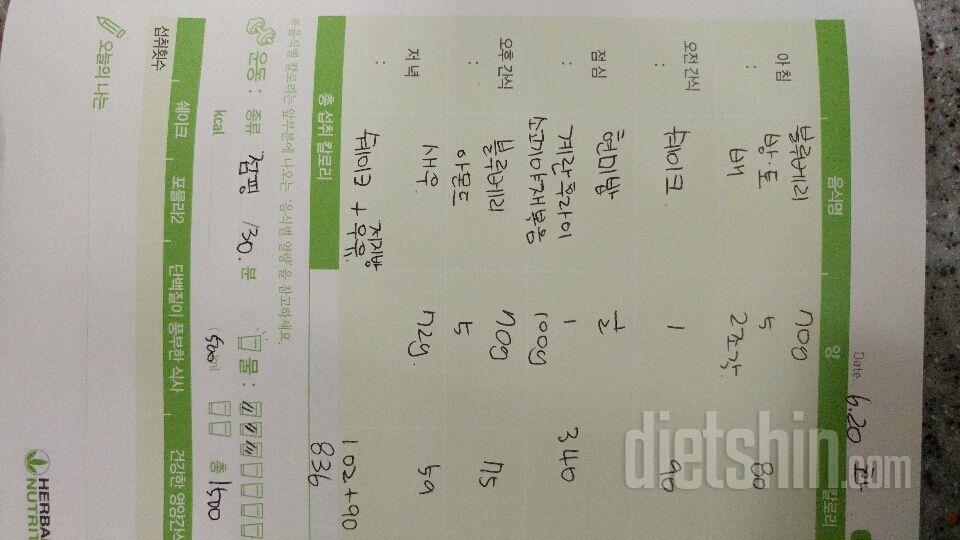 Date 6.20
음식명 양 칼로리
아침 : 블루베리 70g
방.토 5 80
배 2조각.
오전 간식 : 쉐이크. 1 90
점심 : 현미밥
계란후라이 1 340
소고기야채볶음 100g
오후 간식 : 블루베리 70g 75
아몬드 5
저녁 : 새우. 72g. 59
쉐이크 + 저지방 우유. 102+90
총 섭취 칼로리 836
※음식별 칼로리는 앞부분에 나오는 '음식별 열량'을 참고하세요.
운동 : 종류 점핑 /30. 분 물 :
kcal (500ml) 총 1500
섭취횟수 쉐이크 포뮬라2 단백질이 풍부한 식사 건강한 영양간식
오늘의 나는
HERBA
NUTRIT
dietshin.com